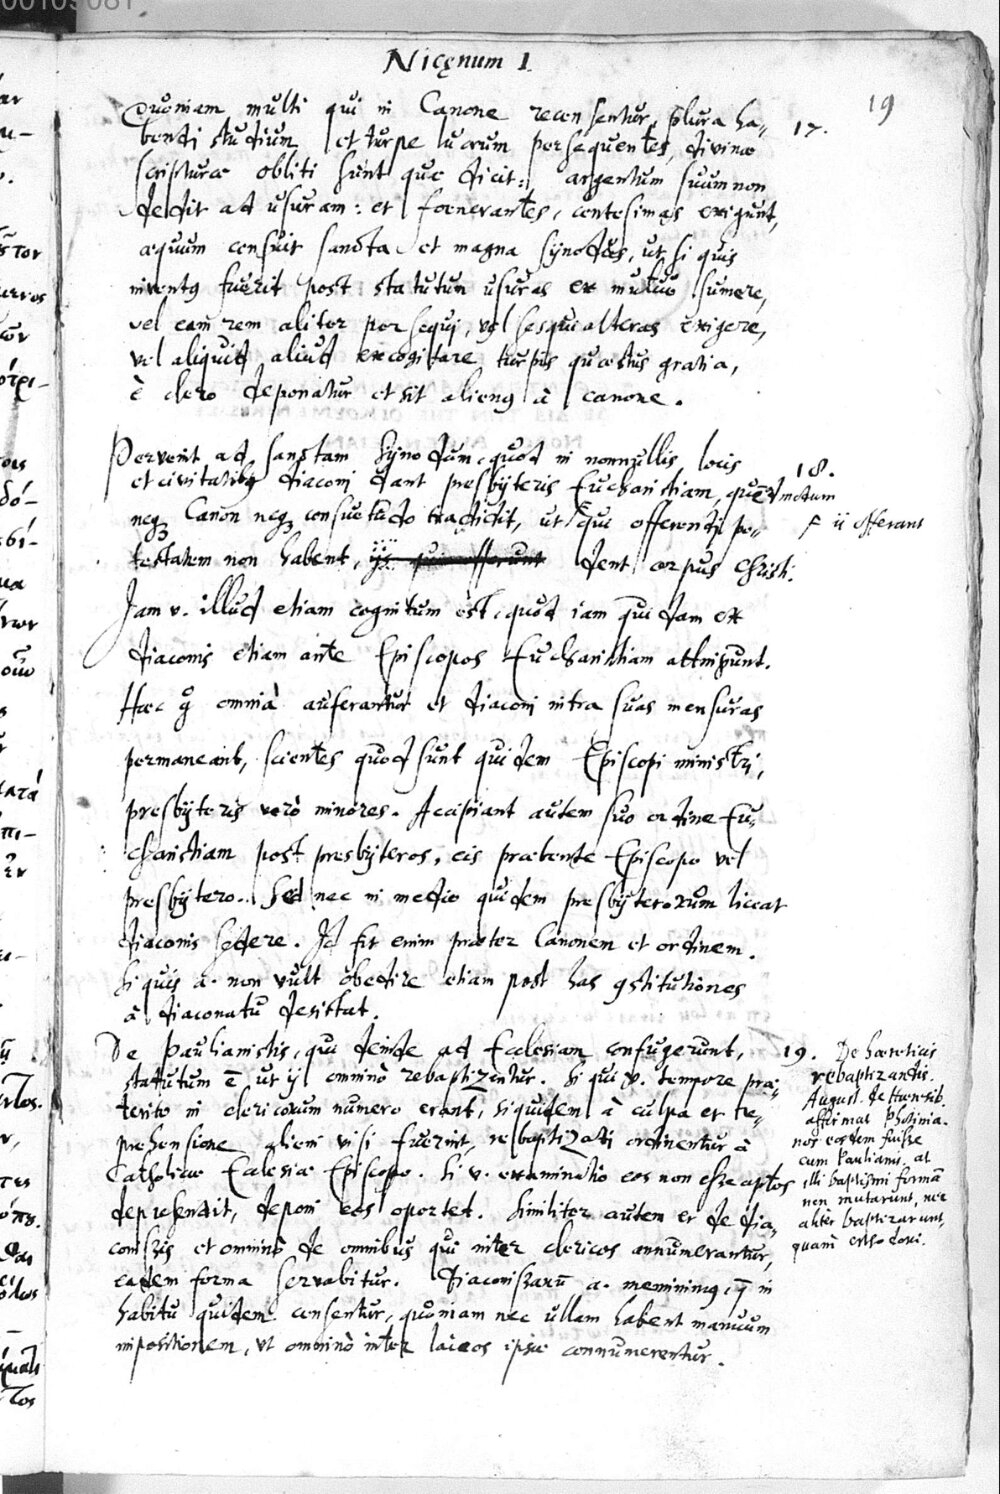 00103081
Nicęnum 1
19
Quoniam multi qui in Canone recensentur, plura ha-
bendi studium et turpe lucrum persequentes, divinæ
scripturæ obliti sunt quæ dicit: argentum suum non
dedit ad usuram: et foenerantes, centesimas exigunt,
æquum censuit sancta et magna synodus, ut si quis
inventꝯ fuerit post statutum usuras ex mutuo sumere,
vel eam rem aliter persequi, vel sesquialteras exigere,
vel aliquid aliud excogitare turpis quæstus gratia,
è clero deponatur et sit alienꝯ à canone.
17.
Pervenit ad sanctam synodum, quod in nonnullis locis
et civitatibꝯ diaconi dant presbyteris Eucharistiam, quod
neqꝫ Canon neqꝫ consuetudo tradidit, ut qui offerendi po-
testatem non habent, ijs qui offerunt dent corpus Christi.
18.
ii offerant
Jam v. illud etiam cognitum est, quod iam quidam ex
diaconis etiam ante Episcopos Eucharistiam attingunt.
Hæc g° omnia auferantur et diaconi intra suas mensuras
permaneant, scientes quod sunt quidem Episcopi ministri,
presbyteris verò minores. Accipiant autem suo ordine Eu-
charistiam post presbyteros, eis præbente Episcopo vel
presbytero. Sed nec in medio quidem presbyterorum liceat
diaconis sedere. Id fit enim præter Canonem et ordinem.
Si quis a. non vult obedire etiam post has ꝯstitutiones
à diaconatu desistat.
De Paulianistis, qui deinde ad Ecclesiam confugerunt,
statutum ē ut ij omninò rebaptizentur. Si qui v. tempore præ-
terito in clericorum numero erant, siquidem à culpa et re-
prehensione alieni visi fuerint, rebaptizati ordinentur à
Catholicæ Ecclesiæ Episcopo. Si v. examinatio eos non esse aptos
deprehendit, deponi eos oportet. Similiter autem et de dia-
conissis et omninò de omnibus qui inter clericos annumerantur,
eadem forma servabitur. Diaconissarū a. meminimꝯ, q̄ in
habitu quidem censentur, quoniam nec ullam habent manuum
impositionem, ut omninò inter laicos ipsæ connumerentur.
19. De hæreticis
rebaptizandis.
August. de Hæresib.
affirmat Photinia-
nos eosdem fuisse
cum Paulianis, at
illi baptismi formā
non mutarunt, nec
aliter baptizarunt,
quam ortodoxi.